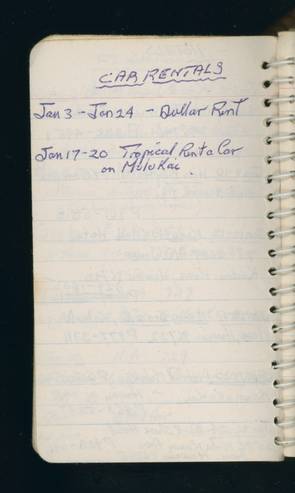 CAR RENTALS
Jan 3 - Jan 24 - Dollar Rent
Jan 17-20 Tropical Rent a Car
on Molokai.